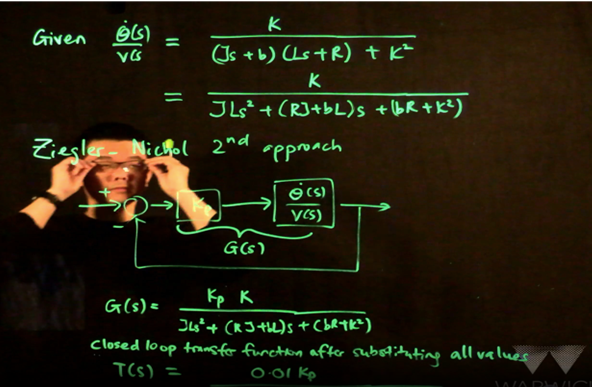 Given Θ̇(s)/V(s = K/((Js + b)(Ls + R) + K²)
= K/(JLs² + (RJ + bL)s + (bR + K²))
Ziegler - Nichol 2nd approach
+ Kp Θ̇(s)/V(s)
-
G(s)
G(s) = Kp K/(JLs² + (RJ + bL)s + (bR + K²))
Closed loop transfer function after substituting all values
T(s) = 0.01 Kp